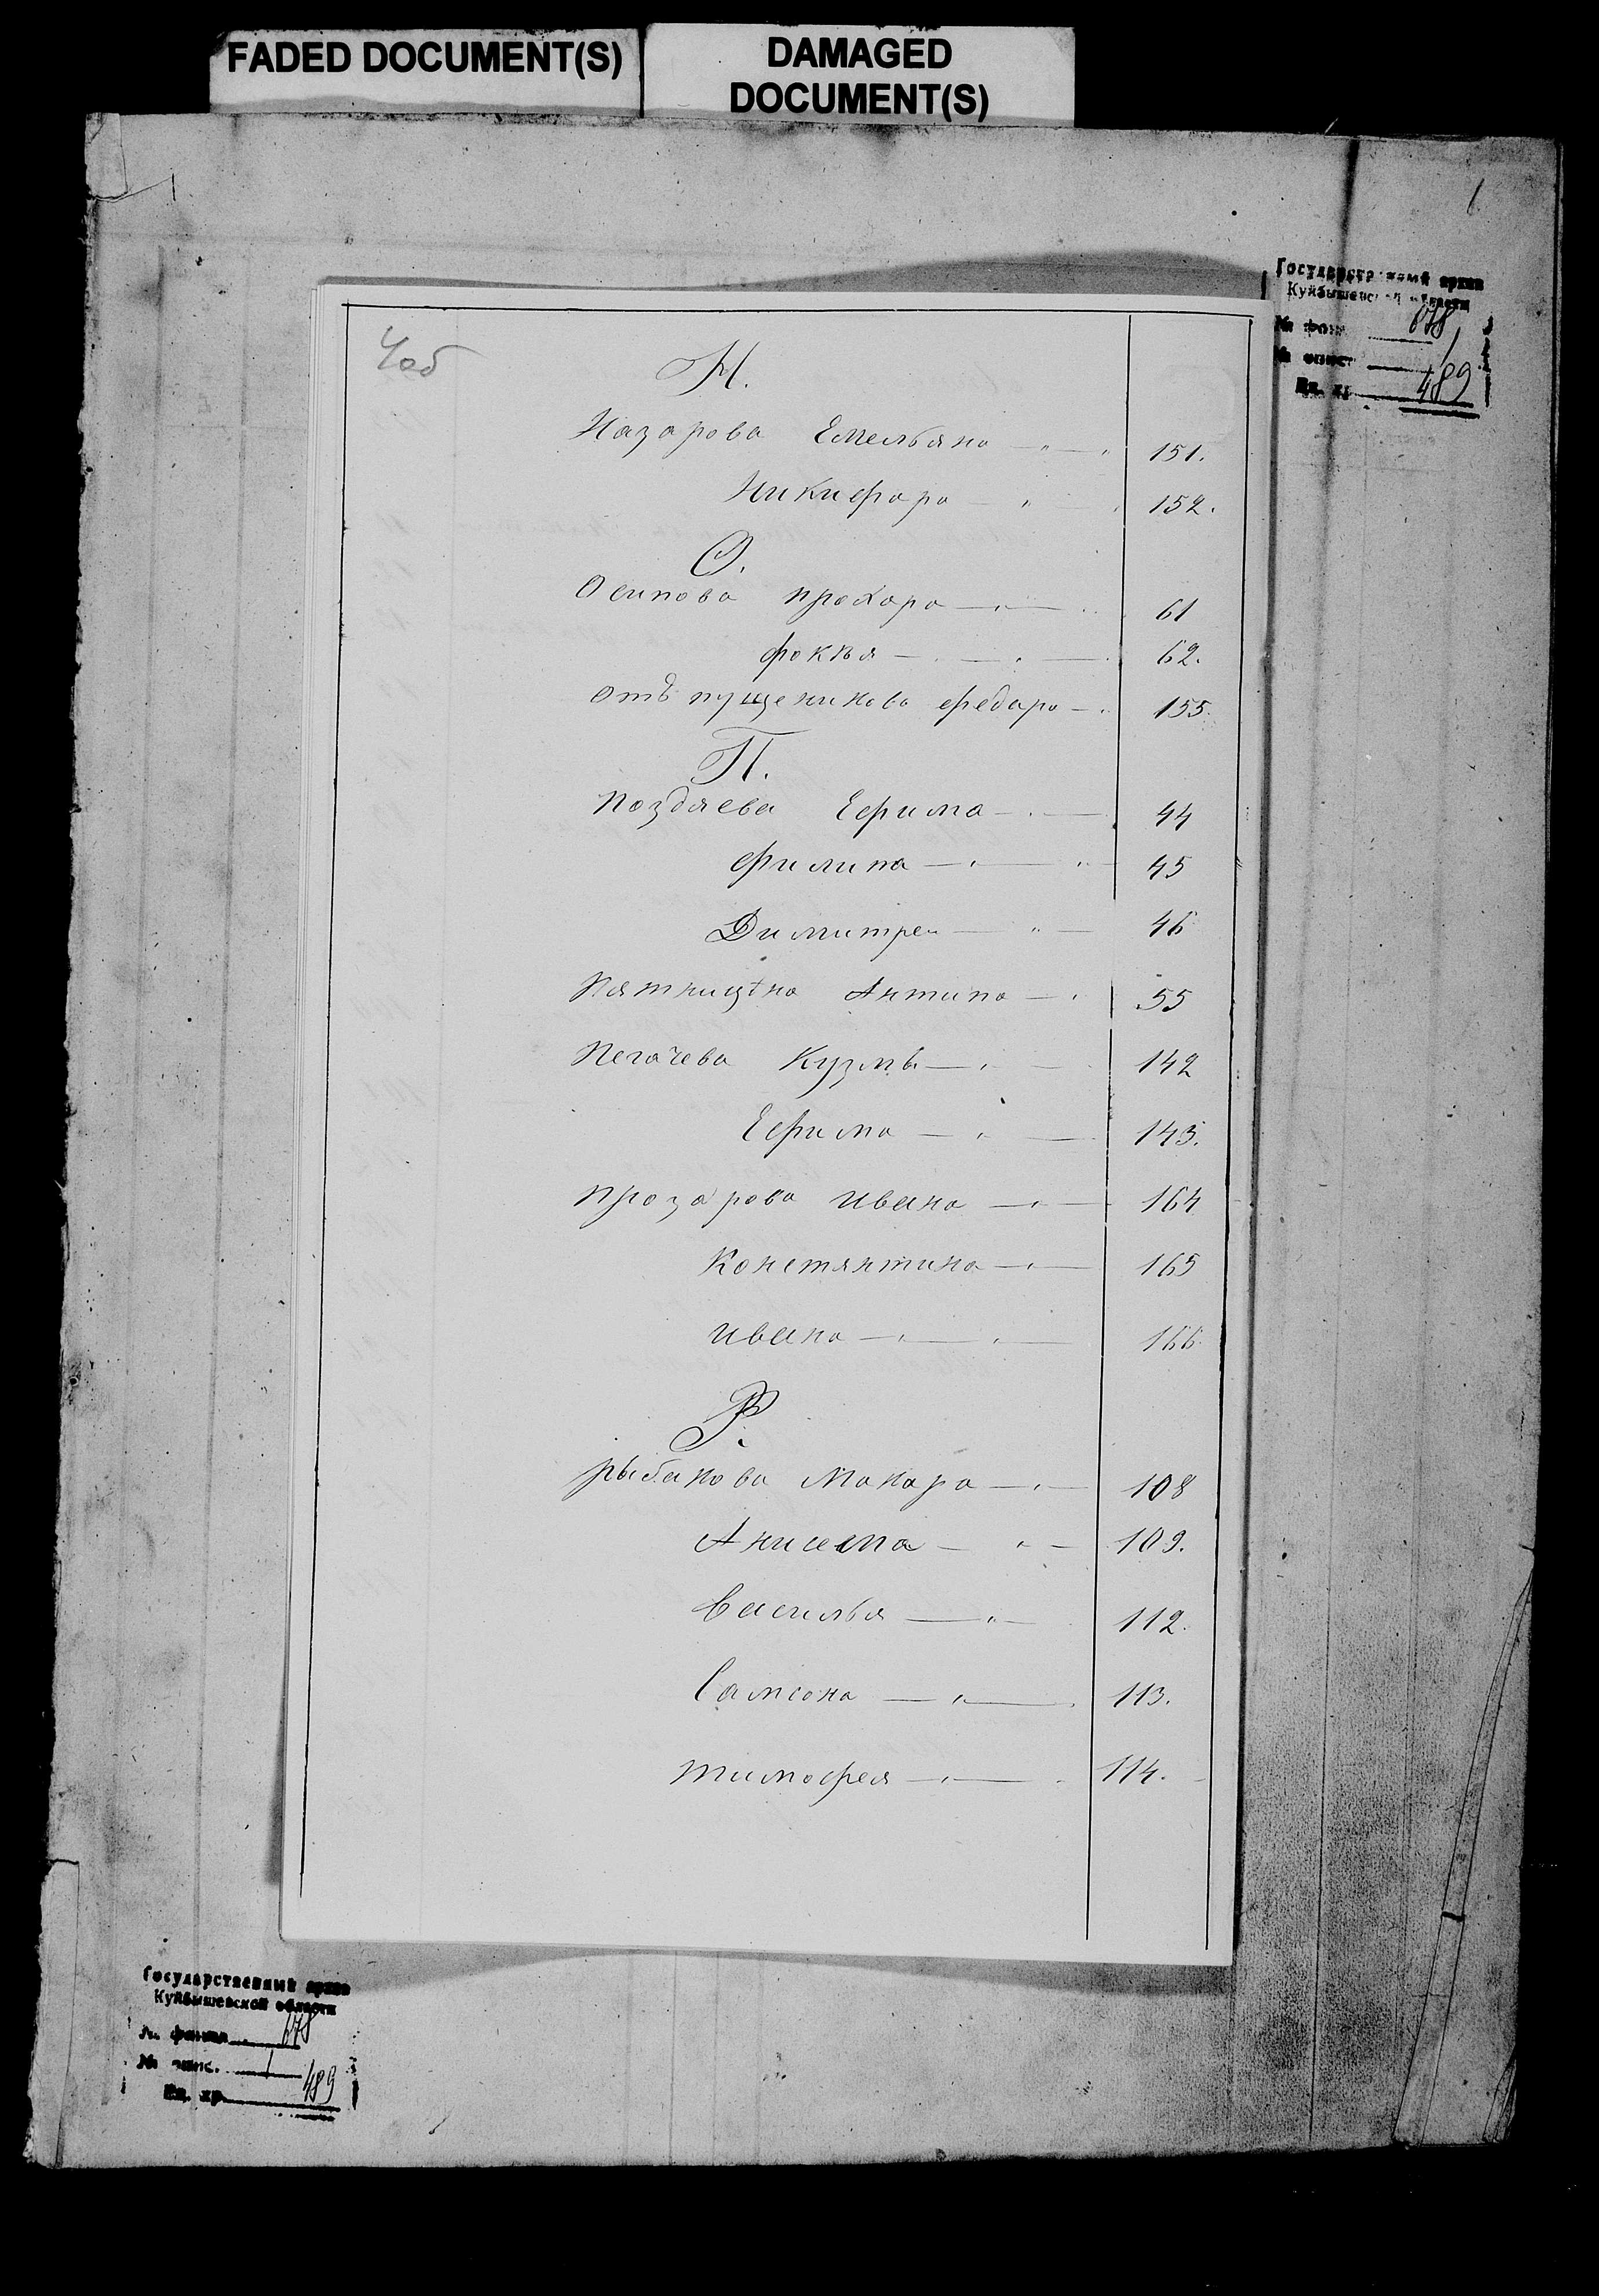 FADED DOCUMENT(S)
DAMAGED
DOCUMENT(S)
Государственный архив
Куйбышевской области
№ фон. 678
№ опис. 1
Ед. хр. 489
4об
Н.
Назарова Емельяна 151.
Никифара 152.
О.
Осипова прохара 61
фокъя 62.
отъпущеникова федара 155.
П.
Поздяева Ефима 44
филипа 45
Димитрея 46
Пятницына Антипа 55
Пегачева Кузмы 142
Ефима 143.
Прозарова ивана 164
Констянтина 165
ивана 166.
Р.
рыбакова Макара 108
Анисема 109.
Василья 112.
Самсона 113.
тимофея 114.
Государственный архив
Куйбышевской области
№ фонда 678
№ опис. 1
Ед. хр. 489